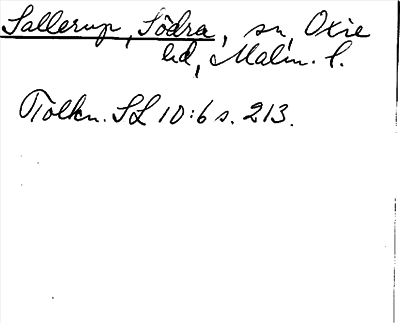 Sallerup, Södra, sn, Oxie
hd, Malm. l.
Tolkn. SL 10:6 s. 213.